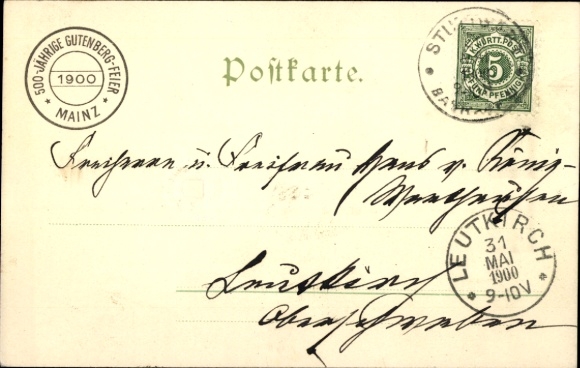 500-JÄHRIGE GUTENBERG-FEIER
1900
* MAINZ *
Postkarte.
STUTTGART
K.WÜRTT.POST
5
FÜNF PFENNIG
Freiherrn u. Freifrau Hans v. König-
Warthausen
LEUTKIRCH
31
MAI
1900
9-10V
Leutkirch
Oberschwaben